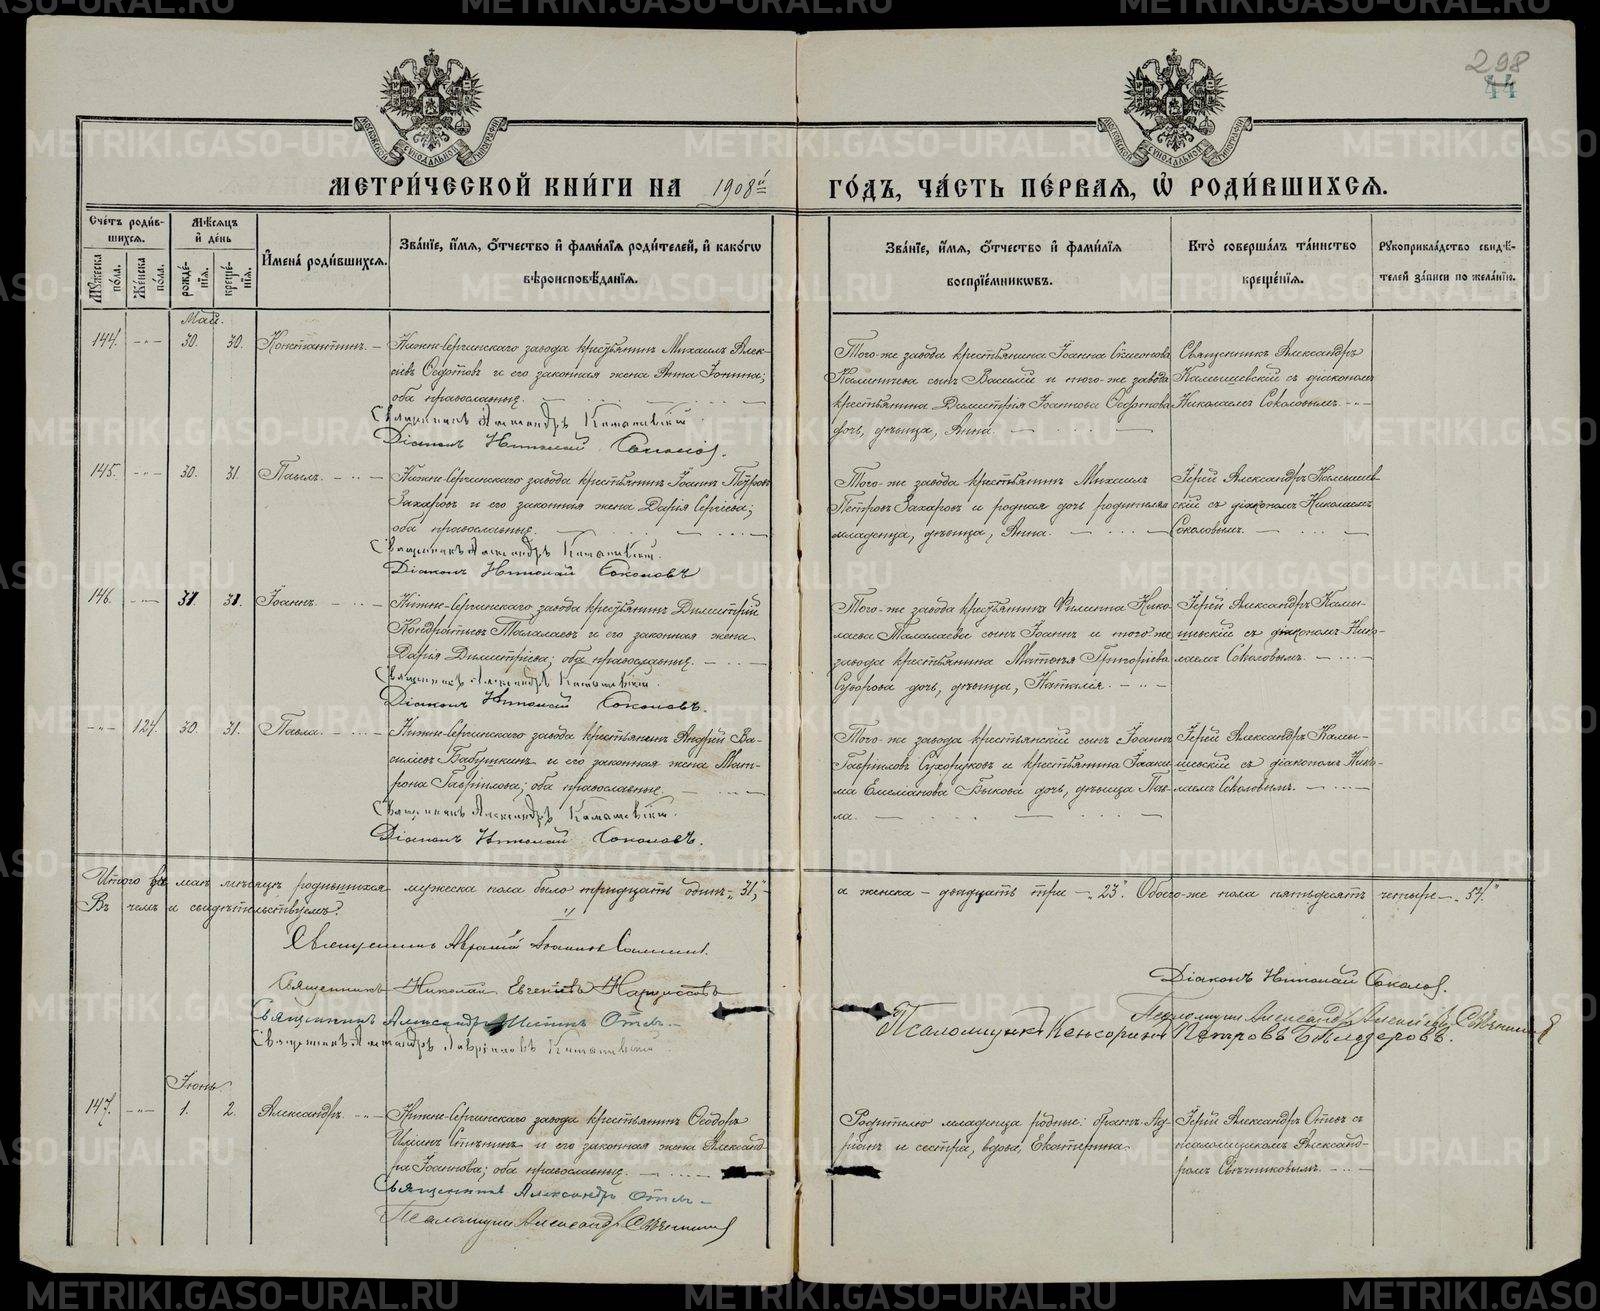 298
44
МОСКОВСКОЙ СѴНОДАЛЬНОЙ ТИПОГРАФІИ
МОСКОВСКОЙ СѴНОДАЛЬНОЙ ТИПОГРАФІИ
МЕТРИ́ЧЕСКОЙ КНИ́ГИ НА 1908й ГО́ДЪ, ЧА́СТЬ ПЕ́РВАЯ, Ѡ҆ РОДИ́ВШИХСЯ.
Сче́тъ роди́в-
шихся.
Мꙋ́жеска по́ла.
Же́нска по́ла.
Мѣ́сяцъ и҆ де́нь
рожде́-
нїѧ.
креще́-
нїѧ.
И҆мена̀ роди́вшихся.
Зва́нїе, и҆́мѧ, о҆́тчество и҆ фами́лїѧ роди́телей, и҆ како́гѡ
вѣроисповѣ́данїѧ.
Зва́нїе, и҆́мѧ, о҆́тчество и҆ фами́лїѧ
воспрїе́мникѡвъ.
Кто̀ соверша́лъ та́инство
креще́нїѧ.
Рꙋкоприкла́дство свидѣ́-
телей за́писи по жела́нїю.
Май.
144. -„- 30. 30. Константинъ. Нижне-Сергинскаго завода крестьянинъ Михаилъ Алек-
сіевъ Ѳедотовъ и его законная жена Анна Іонина;
оба православные.
Священникъ Александръ Камышевскій
Діаконъ Николай Соколовъ.
Того-же завода крестьянина Іоанна Симеонова
сынъ Василій и того-же завода
крестьянина Димитрія Іоаннова Ѳедотова
дочь, дѣвица, Анна.
Священникъ Александръ
Камышевскій съ діакономъ
Николаемъ Соколовымъ.
145. -„- 30. 31. Павелъ. Нижне-Сергинскаго завода крестьянинъ Іоаннъ Петровъ
Захаровъ и его законная жена Дарія Сергіева;
оба православные.
Священникъ Александръ Камышевскій.
Діаконъ Николай Соколовъ
Того-же завода крестьянинъ Михаилъ
Петровъ Захаровъ и родная дочь родителя
младенца, дѣвица, Анна.
Іерей Александръ Камышев
скій съ діакономъ Николаемъ
Соколовымъ.
146. -„- 31. 31. Іоаннъ. Нижне-Сергинскаго завода крестьянинъ Димитрій
Кондратьевъ Талалаевъ и его законная жена
Дарія Димитріева; оба православные.
Священникъ Александръ Камышевскій.
Діаконъ Николай Соколовъ.
Того-же завода крестьянина Филиппа Нико-
лаева Талалаева сынъ Іоаннъ и того-же
завода крестьянина Матѳея Григоріева
Суворова дочь, дѣвица, Наталія.
Іерей Александръ Камы-
шевскій съ діакономъ Нико-
лаемъ Соколовымъ.
-„- 124. 30. 31. Павла. Нижне-Сергинскаго завода крестьянинъ Андрей Ва-
силіевъ Бабушкинъ и его законная жена Мат-
рона Гавріилова; оба православные.
Священникъ Александръ Камышевскій.
Діаконъ Николай Соколовъ.
Того-же завода крестьянскій сынъ Іоаннъ
Гавріиловъ Сухоруковъ и крестьянина Іоаки-
ма Емеліанова Быкова дочь, дѣвица Пав-
ла.
Іерей Александръ Камы-
шевскій съ діакономъ Нико-
лаемъ Соколовымъ.
Итого въ маѣ мѣсяцѣ родившихся мужеска пола было тридцать одинъ „31„ а женска – двадцать три – „23„ Обоего-же пола пятьдесятъ четыре – „54„
Въ чемъ и свидѣтельствуемъ:
Священникъ
Священникъ Николай Евгеніевъ Нарциссовъ
Священникъ Александръ Отевъ
Священникъ Александръ Камышевскій
Діаконъ Николай Соколовъ.
Псаломщикъ Александръ Алексіевъ Свѣчниковъ
Псаломщикъ Кенсоринъ Петровъ Бѣлозеровъ.
Іюнь.
147. -„- 1. 2. Александръ. Нижне-Сергинскаго завода крестьянинъ Ѳеодоръ
и его законная жена Александ-
ра Іоаннова; оба православные.
Священникъ Александръ Отевъ
Псаломщикъ Александръ Свѣчниковъ
Родителю младенца родные: братъ Ад-
ріанъ и сестра, вдова, Екатерина.
Іерей Александръ Отевъ съ
псаломщикомъ Александ-
ромъ Свѣчниковымъ.
METRIKI.GASO-URAL.RU